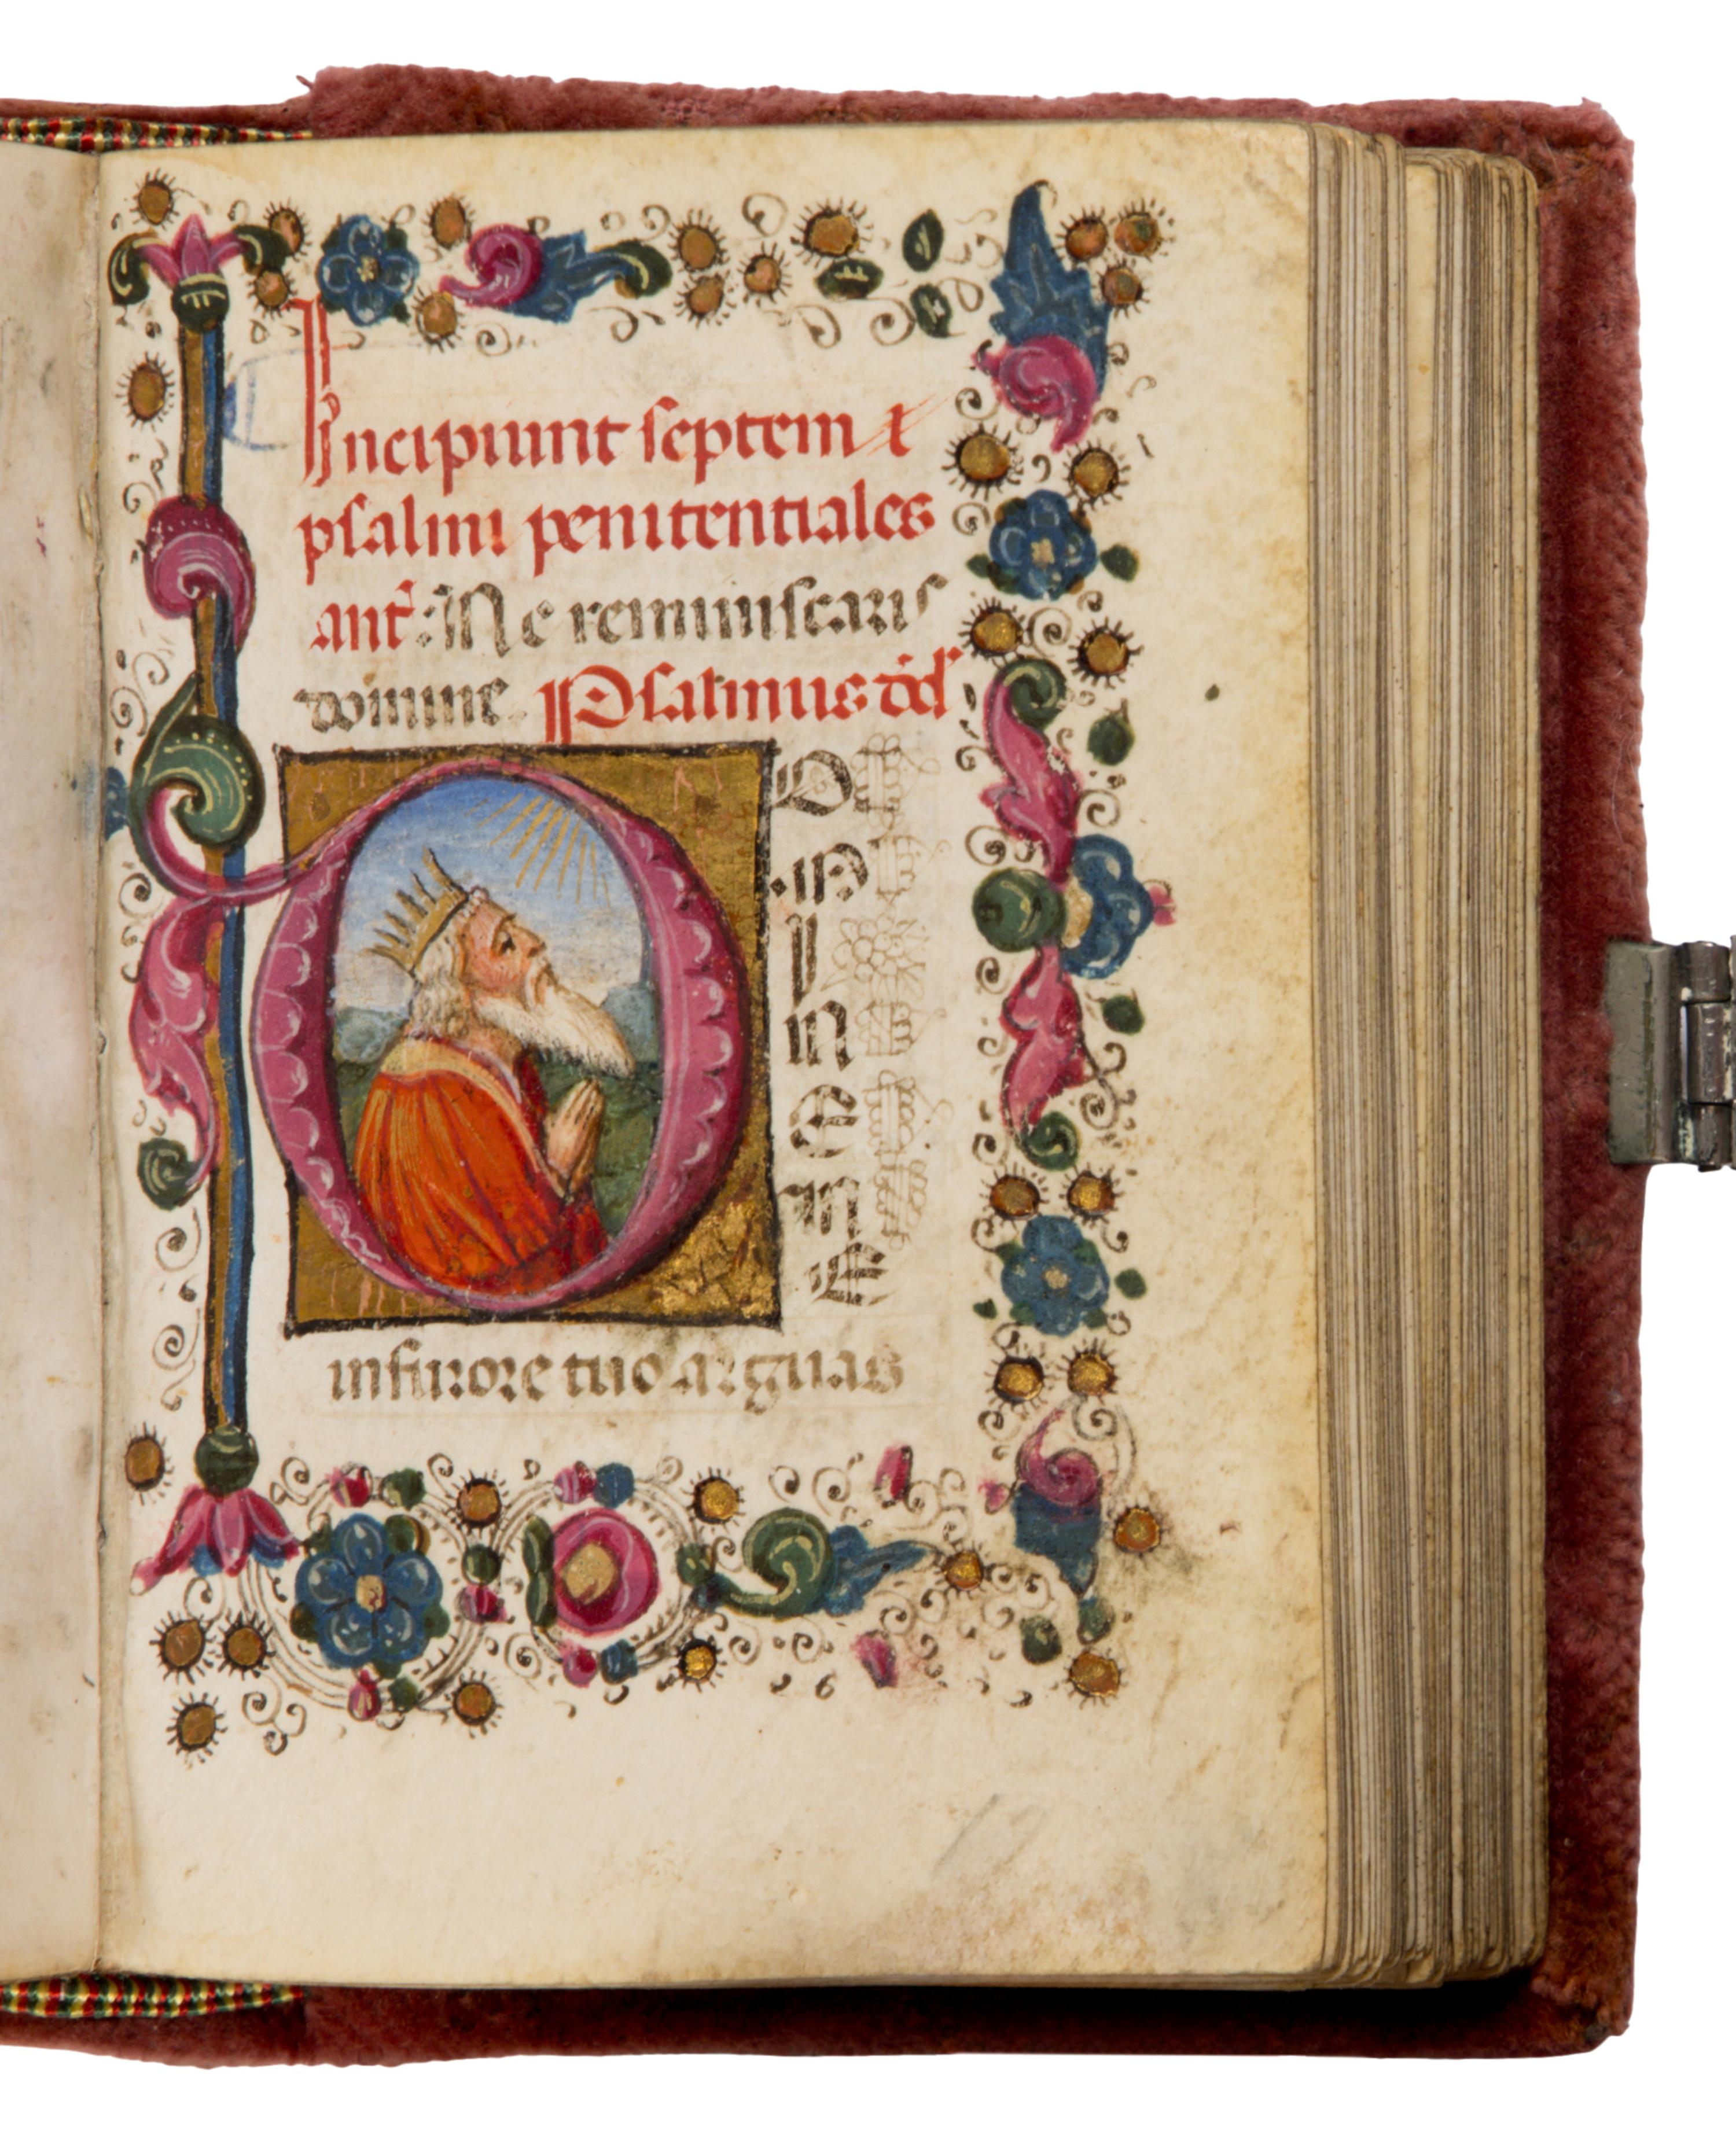 Incipiunt septem
psalmi penitentiales
ant̄. Ne reminiscaris
domine. Psalmus dd
D O
M
I
N
E
N
E
in furore tuo arguas